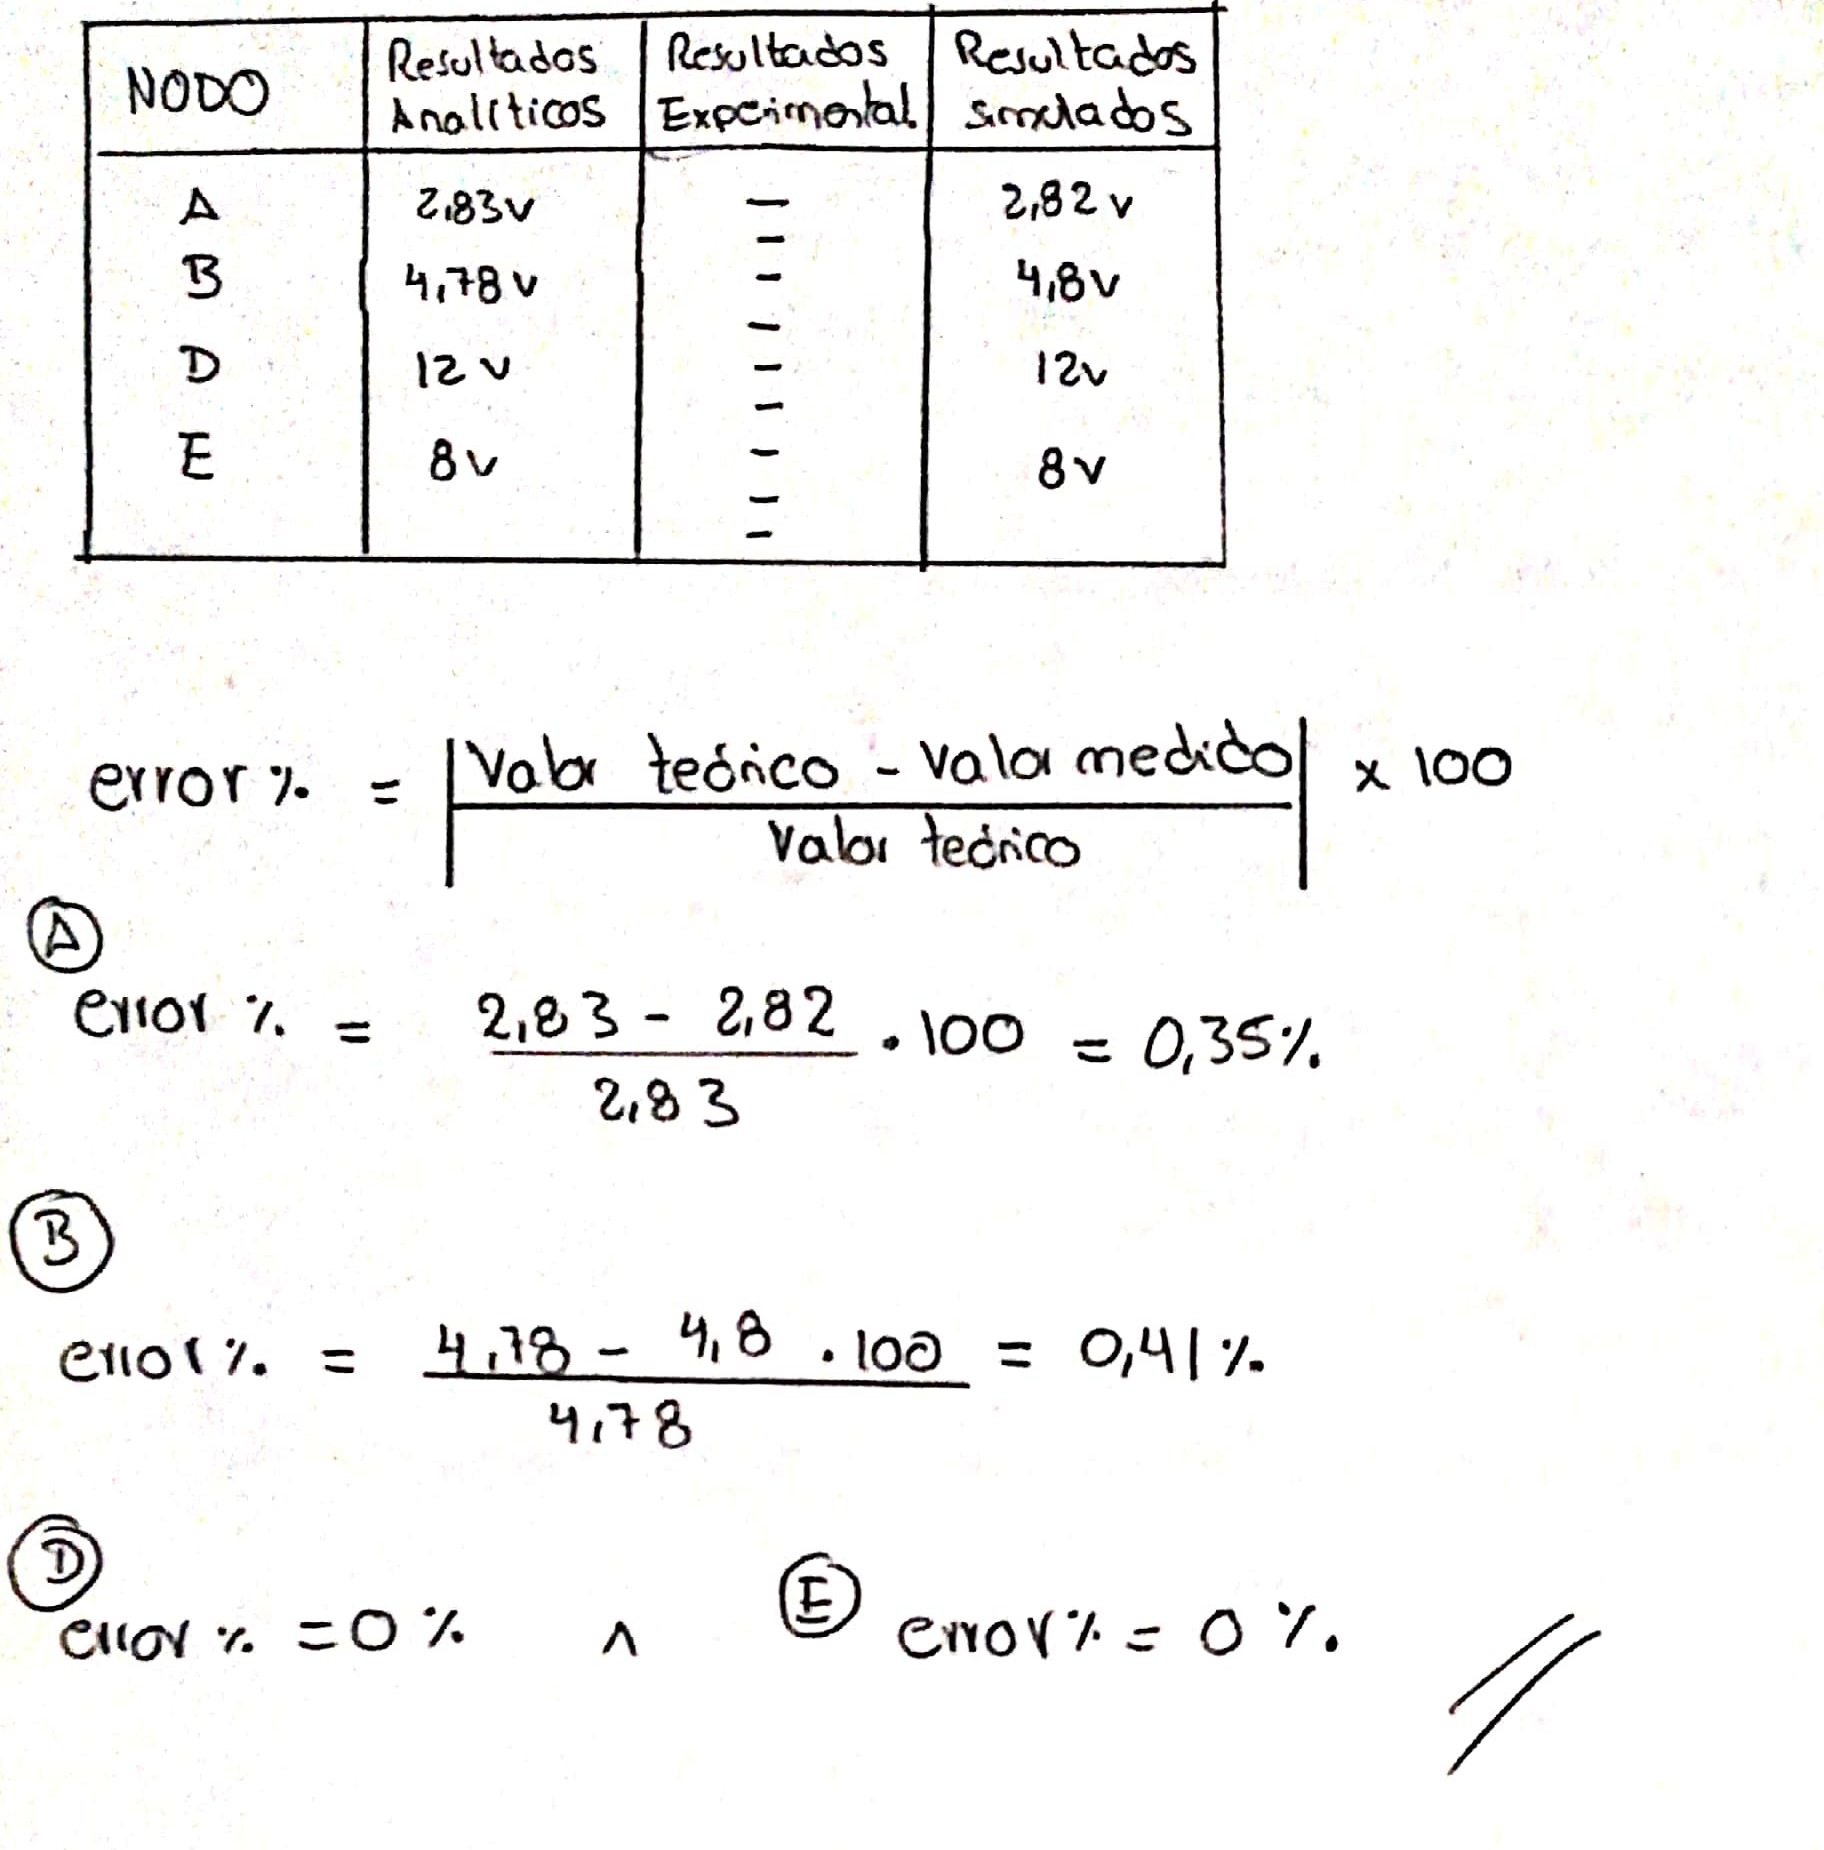 NODO | Resultados Analíticos | Resultados Experimental | Resultados simulados
A | 2,83v | — | 2,82v
B | 4,78v | — | 4,8v
D | 12v | — | 12v
E | 8v | — | 8v
error % = | Valor teórico - Valor medido / Valor teórico | x 100
A
error % = 2,83 - 2,82 / 2,83 . 100 = 0,35%
B
error % = 4,78 - 4,8 . 100 / 4,78 = 0,41%
D E
error % = 0% ∧ error % = 0%.